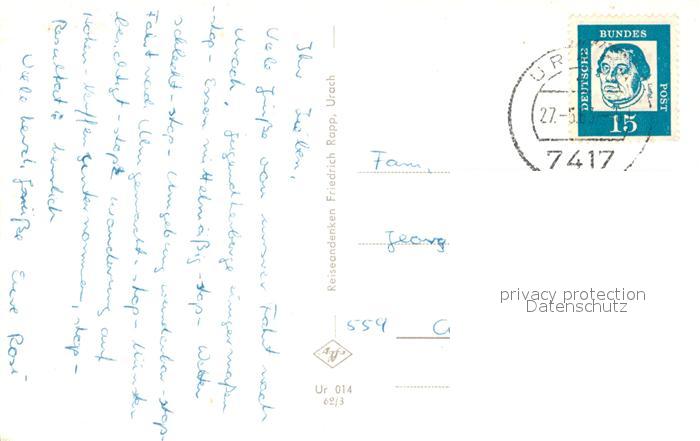 Ihr Lieben,
Viele Grüße von unserer Fahrt nach
Urach. Jugendherberge einigermaßen
-stop- Essen mittelmäßig -stop- Wetter
schlecht -stop- Umgebung wunderbar -stop-
Fahrt nach Ulm gemacht -stop- Münster
besichtigt -stop- Wanderung auf
Hohen-Neuffen unternommen, stop-
Resultat: herrlich
Viele herzl. Grüße Eure Rosi
Reiseandenken Friedrich Rapp, Urach
Ur 014
62/3
Fam.
Georg
559
DEUTSCHE
BUNDES
POST
15
URACH
27.-5.63
7417
privacy protection
Datenschutz